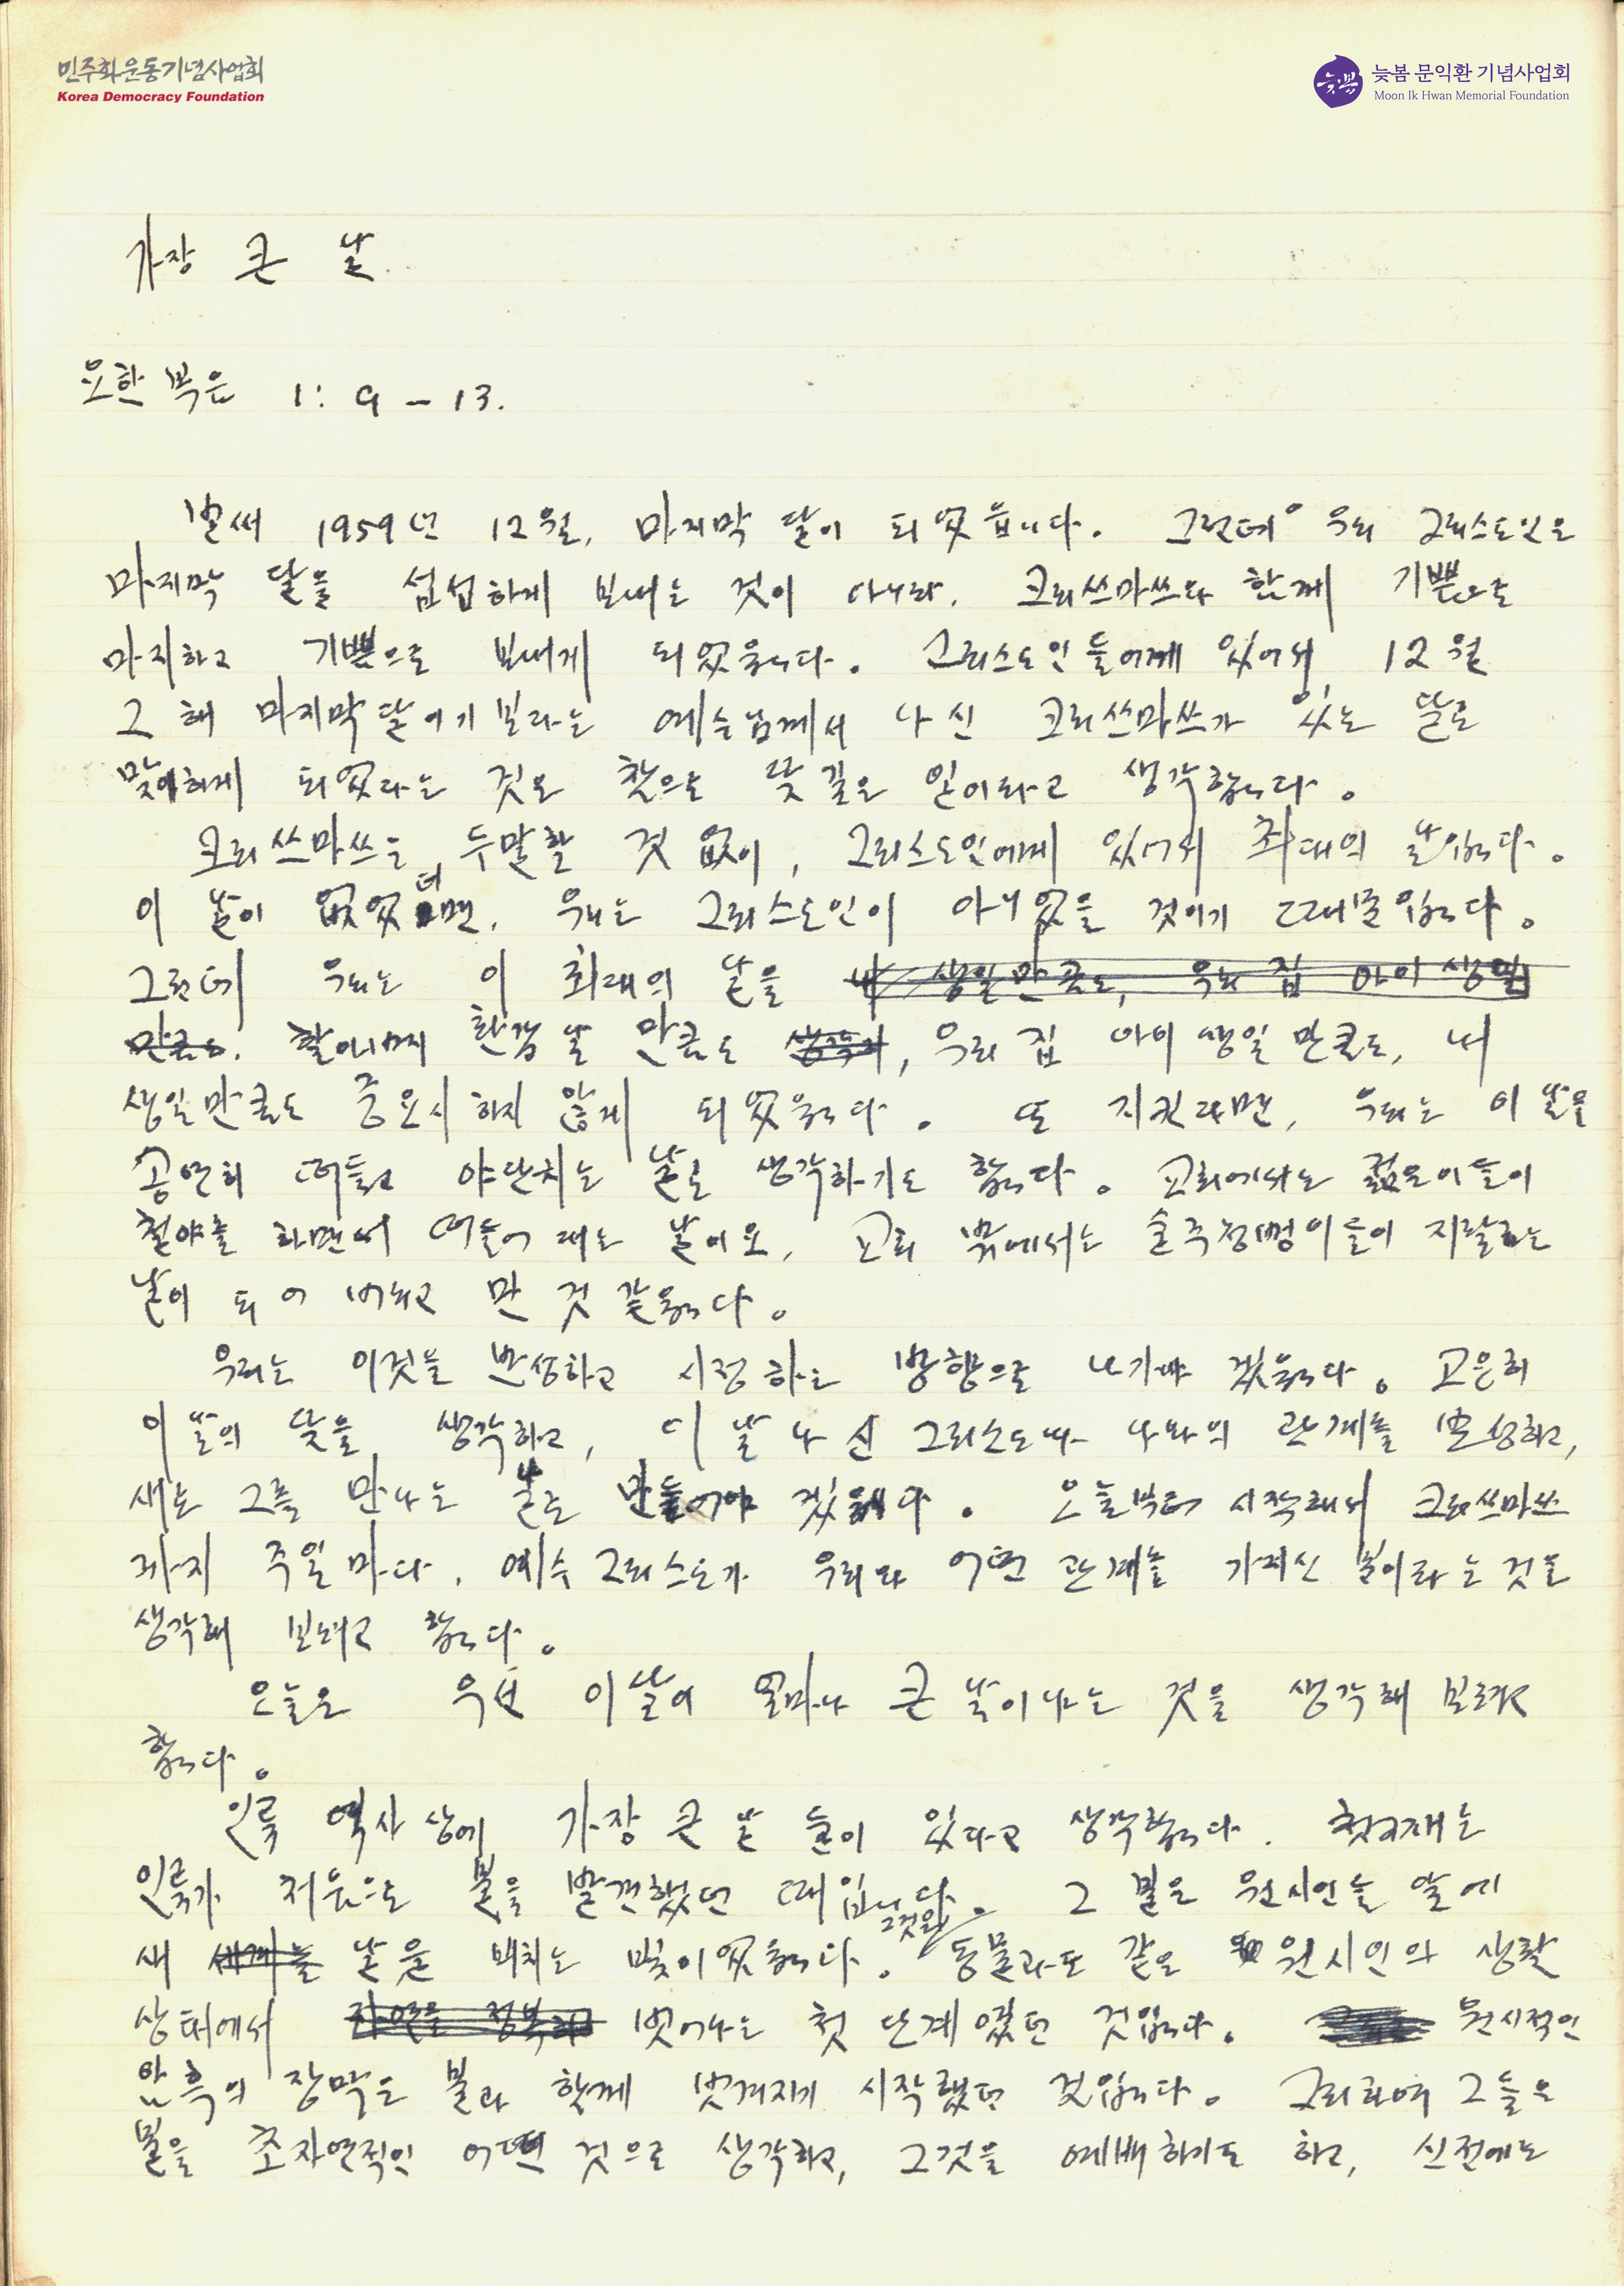 민주화운동기념사업회
Korea Democracy Foundation
늦봄
늦봄 문익환 기념사업회
Moon Ik Hwan Memorial Foundation
가장 큰 날
요한복은 1: 9 - 13.
벌써 1959년 12월, 마지막 달이 되었읍니다. 그런데 우리 그리스도인은
마지막 달을 섭섭하게 보내는 것이 아니라, 크리쓰마쓰와 함께 기쁨으로
마지하고 기쁨으로 보내게 되었읍니다. 그리스도인들에게 있어서, 12월
그 해 마지막달이기보라는 예수님께서 나신 크리쓰마쓰가 있는 달로
맞이하게 되었다는 것은 참으로 뜻깊은 일이라고 생각합니다.
크리쓰마쓰는, 두말할 것 없이, 그리스도인에게 있어서 최대의 날입니다.
이 날이 없었더면, 우리는 그리스도인이 아니었을 것이기 때문입니다.
그런데 우리는 이 최대의 날을 내 생일만큼도, 우리 집 아이 생일
만큼도. 할아버지 환갑날 만큼도, 우리 집 아이 생일 만큼도, 내
생일만큼도 중요시하지 않게 되었읍니다. 또 지킨다면, 우리는 이 날을
공연히 떠들고 야단치는 날로 생각하기도 합니다. 교회에서는 젊은이들이
철야를 하면서 떠들어 대는 날이요, 교회 밖에서는 술주정뱅이들이 지랄하는
날이 되어 버리고 만 것 같읍니다.
우리는 이것을 반성하고 시정하는 방향으로 나가야 겠읍니다. 고은히
이 날의 뜻을 생각하고, 이 날 나신 그리스도와 나와의 관계를 반성하고,
새로 그를 만나는 날로 만들어야 겠읍니다. 오늘부터 시작해서 크리쓰마쓰
까지 주일마다, 예수 그리스도가 우리와 어떤 관계를 가지신 분이라는 것을
생각해 보려고 합니다.
오늘은 우선 이날이 얼마나 큰 날이냐는 것을 생각해 보려고
합니다.
인류 역사상에 가장 큰 날 둘이 있다고 생각합니다. 첫째는
인류가 처음으로 불을 발견했던 때입니다. 그 불은 원시인들 앞에
새 세계를 날을 비치는 빛이었읍니다. 그것은 동물과도 같은 원시인의 생활
상태에서 자연을 정복 벗어나는 첫 단계였던 것입니다. 원시적인
암흑의 장막은 불과 함께 벗겨지기 시작했던 것입니다. 그리하여 그들은
불을 초자연적인 어떤 것으로 생각하고, 그것을 예배하기도 하고, 신전에는